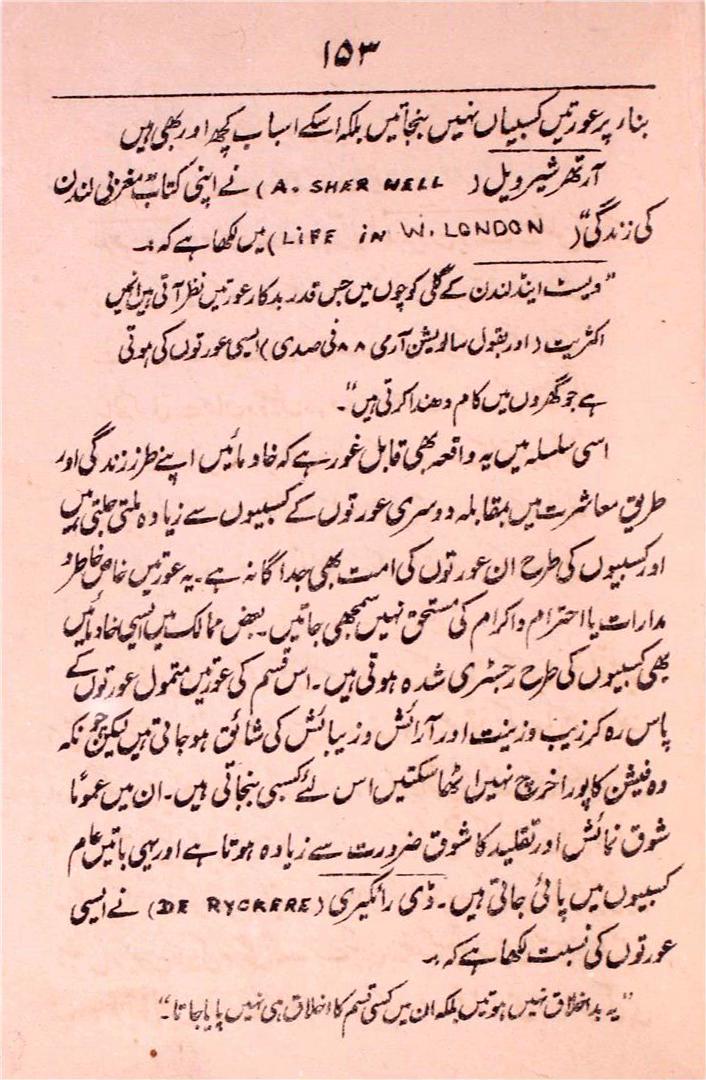 ۱۵۳
بناء پر عورتیں کسبیاں نہیں بنجاتیں بلکہ اسکے اسباب کچھ اور بھی ہیں
آرتھر شیرویل ( A. SHER WELL ) نے اپنی کتاب "مغربی لندن
کی زندگی" ( LIFE IN W. LONDON ) میں لکھا ہے کہ :۔
"ویسٹ اینڈ لندن کے گلی کوچوں میں جس قدر بدکار عورتیں نظر آتی ہیں انہیں
اکثریت ( اور بقول سالویشن آرمی ۸۸ فی صدی ) ایسی عورتوں کی ہوتی
ہے جو گھروں میں کام دھندا کرتی ہیں"۔
اسی سلسلہ میں یہ واقعہ بھی قابل غور ہے کہ خادمائیں اپنے طرز زندگی اور
طریق معاشرت میں بمقابلہ دوسری عورتوں کے کسبیوں سے زیادہ ملتی جلتی ہیں
اور کسبیوں کی طرح ان عورتوں کی امت بھی جداگانہ ہے ۔ یہ عورتیں خاص خاطر و
مدارات یا احترام و اکرام کی مستحق نہیں سمجھی جاتیں ۔ بعض ممالک میں ایسی خادمائیں
بھی کسبیوں کی طرح رجسٹری شدہ ہوتی ہیں ۔ اس قسم کی عورتیں متمول عورتوں کے
پاس رہ کر زیب و زینت اور آرائش و زیبائش کی شائق ہو جاتی ہیں لیکن چونکہ
وہ فیشن کا پورا خرچ نہیں اٹھا سکتیں اس لئے کسبی بنجاتی ہیں ۔ ان میں عموماً
شوق نمائش اور تقلید کا شوق ضرورت سے زیادہ ہوتا ہے اور یہی باتیں عام
کسبیوں میں پائی جاتی ہیں ۔ ڈی رائکیری ( DE RYCKERE ) نے ایسی
عورتوں کی نسبت لکھا ہے کہ :۔
"یہ بد اخلاق نہیں ہوتیں بلکہ ان میں کسی قسم کا اخلاق ہی نہیں پایا جاتا ۔"